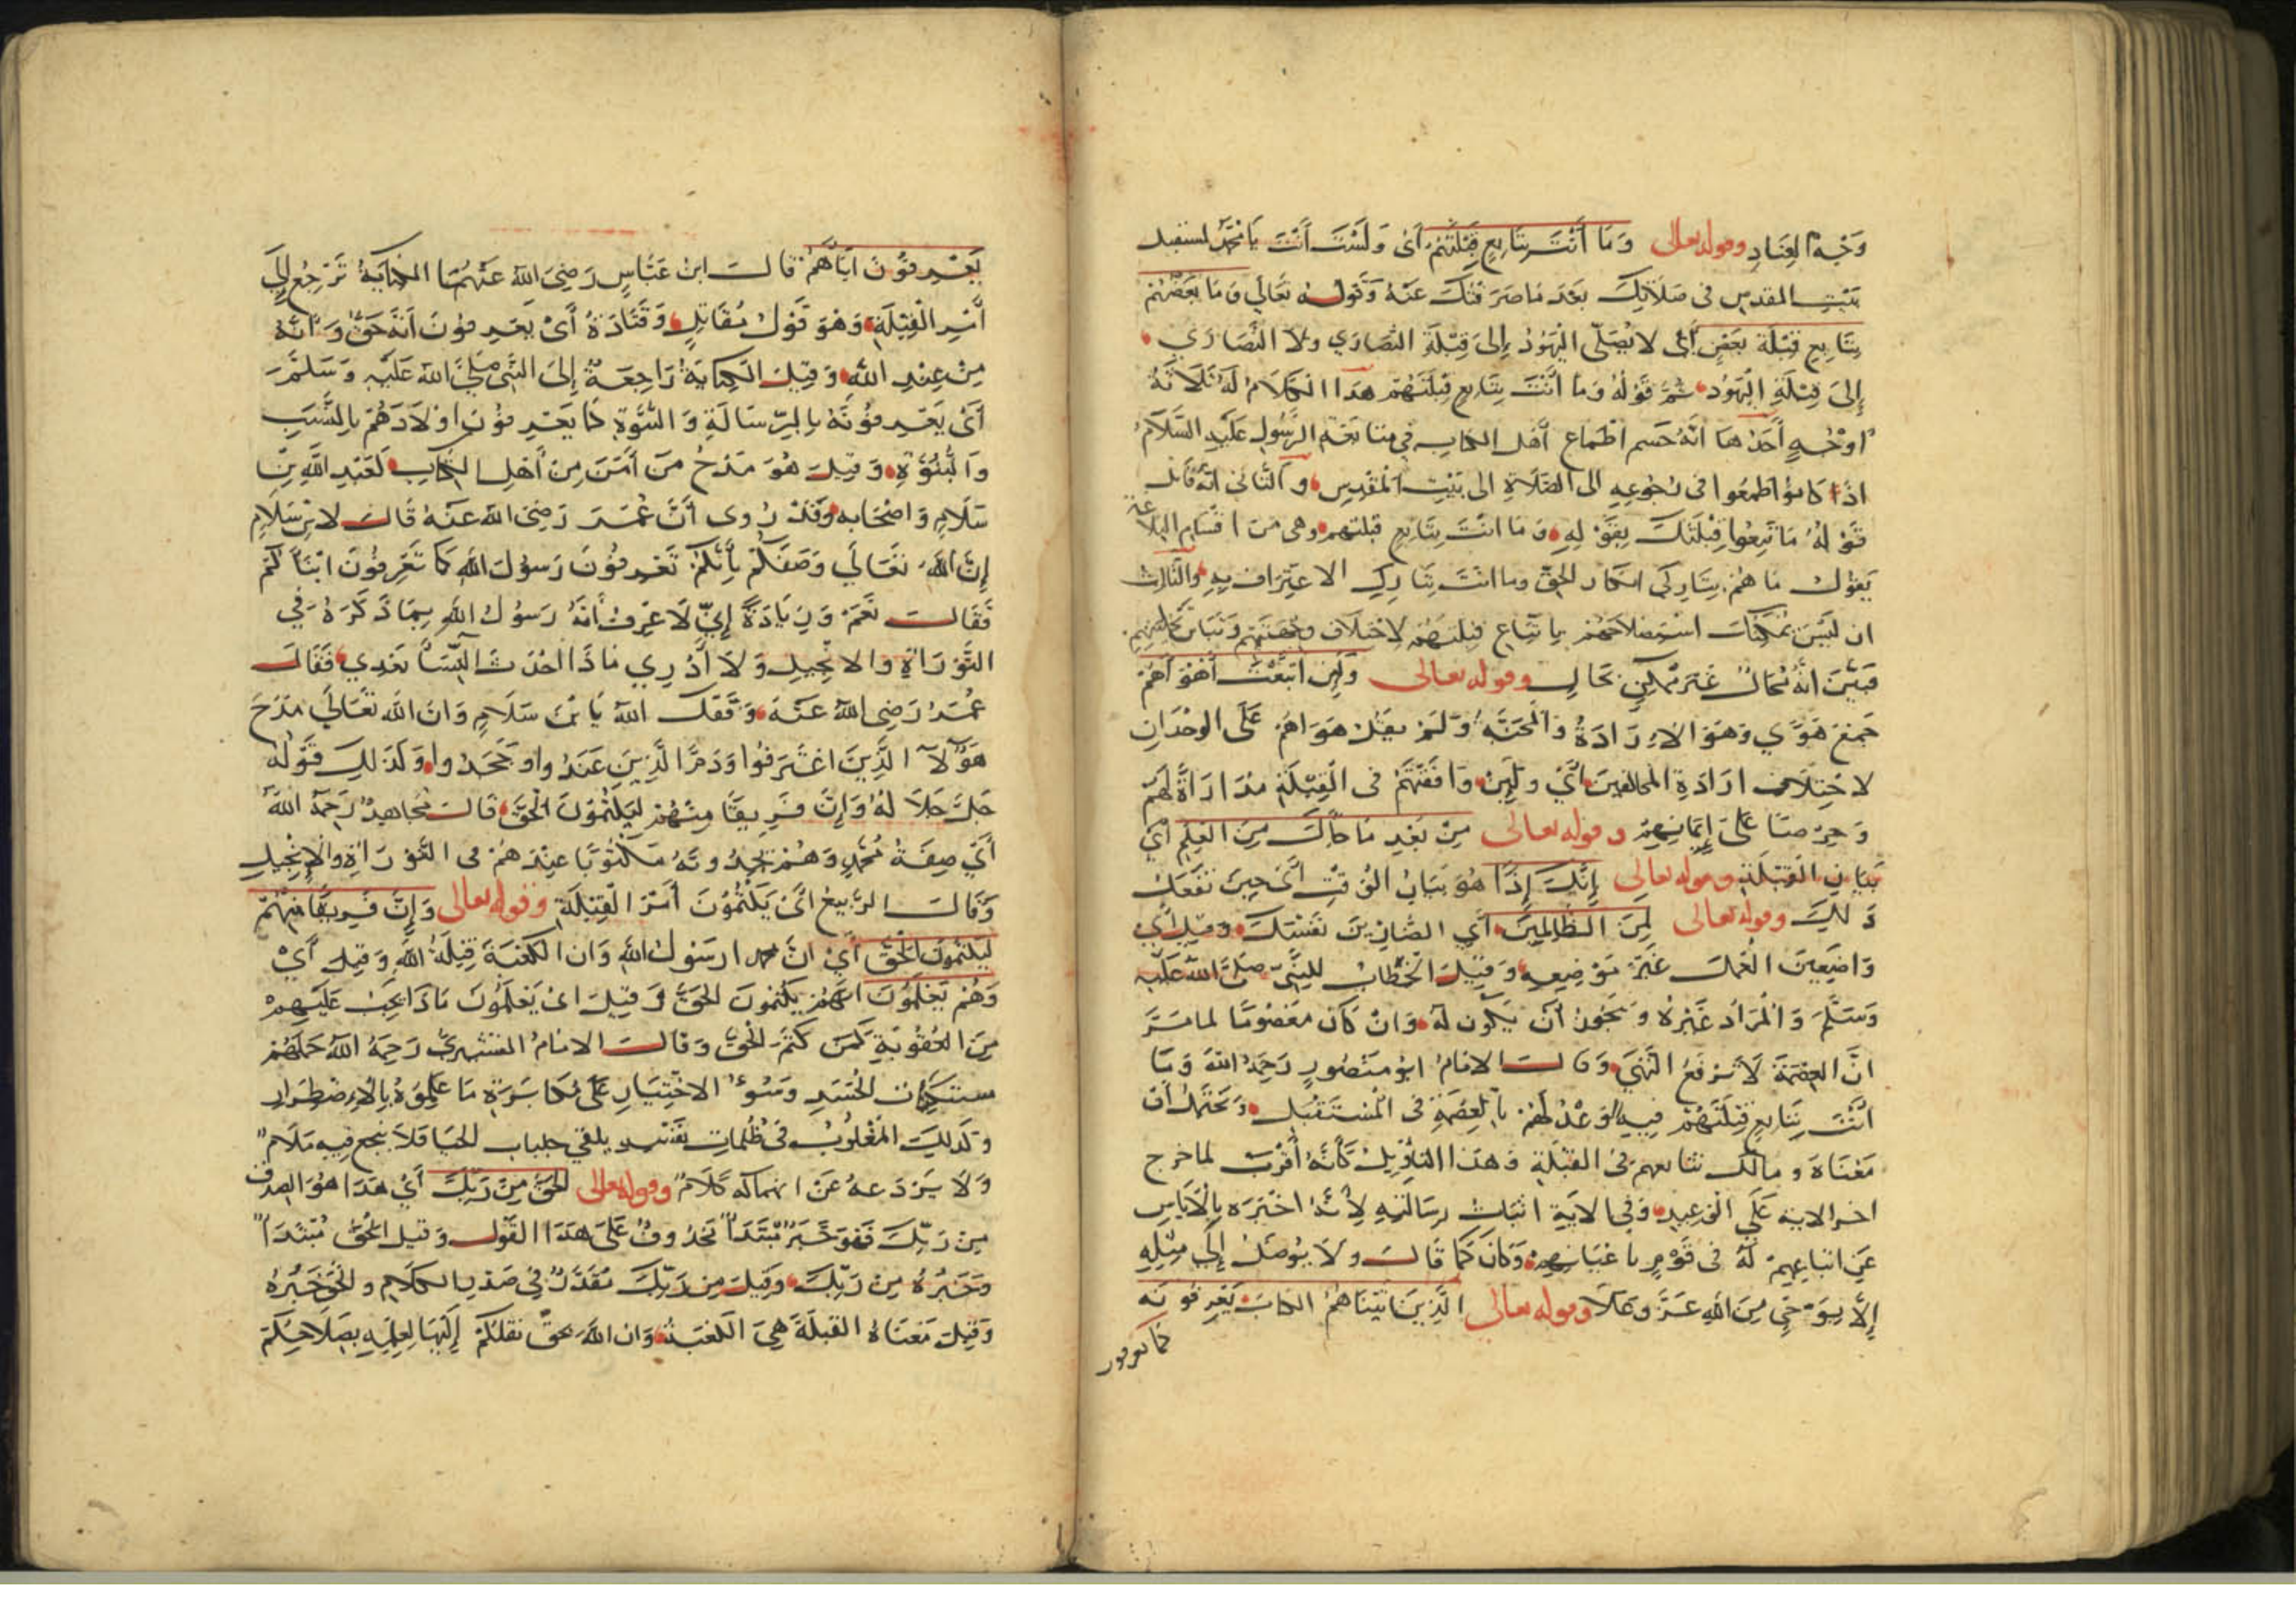 وَجْهُ الْعِنَادِ وقوله تعالى وَمَا أَنْتَ بِتَابِعٍ قِبْلَتَهُمْ أَيْ وَلَسْتَ أَنْتَ يَا مُحَمَّدُ لمستقبل
بَيْتِ المقدس فى صَلَاتِكَ بَعْدَ مَا صَرَفْتُكَ عَنْهُ وَقَوْلُهُ تَعَالَى وَمَا بَعْضُهُمْ
بِتَابِعٍ قِبْلَةَ بَعْضٍ أَيْ لَا يُصَلِّي الْيَهُودُ إِلَى قِبْلَةِ النَّصَارَى ولا النَّصَارَى
إِلَى قِبْلَةِ الْيَهُودِ ثُمَّ قَوْلُهُ وَمَا أَنْتَ بِتَابِعٍ قِبْلَتَهُمْ هذا الْكَلَامُ لَهُ ثَلَاثَةُ
أَوْجُهٍ أَحَدُهَا أَنَّهُ حَسَمَ أَطْمَاعَ أَهْلِ الكتاب فِي متابعة الرَّسُولِ عَلَيْهِ السَّلَامُ
إذا كَانُوا طَمِعُوا فى رُجُوعِهِ إلى الصَّلَاةِ إلى بَيْتِ الْمَقْدِسِ وَالثَّانِي أَنَّهُ قَابَلَ
قَوْلَهُ مَا تَبِعُوا قِبْلَتَكَ بِقَوْلِهِ وَمَا أَنْتَ بِتَابِعٍ قبلتهم وهى مِنْ أَقْسَامِ البلاغة
يَقُولُ مَا هُمْ بِتَارِكِي إنكار الْحَقِّ وما أَنْتَ بِتَارِكِ الاعْتِرَافِ بِهِ وَالثَّالِثُ
أن لَيْسَ يُمْكِنُكَ اسْتِصْلَاحُهُمْ بِاتِّبَاعِ قِبْلَتِهِمْ لِاخْتِلَافِ وِجْهَتِهِمْ
فَبَيَّنَ أَنَّهُ مُحَالٌ غَيْرُ مُمْكِنٍ بِحَالٍ وقوله تعالى وَلَئِنِ اتَّبَعْتَ أَهْوَاءَهُمْ
جَمْعُ هَوًى وَهُوَ الْإِرَادَةُ وَالْمَحَبَّةُ وَلَمْ يَقُلْ هَوَاهُمْ عَلَى الْوُحْدَانِ
لِاخْتِلَافِ إرَادَةِ الْمُخَالِفِينَ أَيْ وَلَئِنْ وَافَقْتَهُمْ فِى الْقِبْلَةِ مُدَارَاةً لَهُمْ
وَحِرْصًا عَلَى إِيمَانِهِمْ وقوله تعالى مِنْ بَعْدِ مَا جَاءَكَ مِنَ الْعِلْمِ أَيْ
بَيَانِ الْقِبْلَةِ وقوله تعالى إِنَّكَ إِذًا هُوَ بَيَانُ الْوَقْتِ أَيْ حِينَ تَفْعَلُ
ذَلِكَ وقوله تعالى لَمِنَ الظَّالِمِينَ أَيِ الضَّارِّينَ نَفْسَكَ وَقِيلَ أَيْ
وَاضِعِينَ الْعَمَلَ غَيْرَ مَوْضِعِهِ وَقِيلَ الْخِطَابُ لِلنَّبِيِّ صَلَّى اللهُ عَلَيْهِ
وَسَلَّمَ وَالْمُرَادُ غَيْرُهُ وَيَجُوزُ أَنْ يَكُونَ لَهُ وَإِنْ كَانَ مَعْصُومًا لِمَا مَرَّ
أَنَّ الْعِصْمَةَ لَا تَرْفَعُ النَّهْيَ وَقَالَ الإمَامُ أَبُو مَنْصُورٍ رَحِمَهُ اللهُ وَمَا
أَنْتَ بِتَابِعٍ قِبْلَتَهُمْ فِيهِ الْوَعْدُ لَهُمْ بِالْعِصْمَةِ فِى الْمُسْتَقْبَلِ وَيَحْتَمِلُ أَنَّ
مَعْنَاهُ وَمَا لَكَ تتابعهم فِى الْقِبْلَةِ وَهَذَا التَّأْوِيلُ كَأَنَّهُ أَقْرَبُ لما خرج
آخر الآية عَلَى الْوَعِيدِ وَفِي الْآيَةِ إثْبَاتُ رِسَالَتِهِ لِأَنَّهُ أَخْبَرَهُ بِالْإِيَاسِ
عَنِ اتِّبَاعِهِمْ لَهُ فِى قَوْمٍ بِأَعْيَانِهِمْ وَكَانَ كَمَا قَالَ وَلَا يُوصَلُ إِلَى مِثْلِهِ
إِلَّا بِوَحْيٍ مِنَ اللهِ عَزَّ وَعَلَا وقوله تعالى الَّذِينَ آتَيْنَاهُمُ الْكِتَابَ يَعْرِفُونَهُ
كما يعرفون
يَعْرِفُونَ أَبْنَاءَهُمْ قَالَ ابْنُ عَبَّاسٍ رَضِيَ اللهُ عَنْهُمَا الْكِنَايَةُ تَرْجِعُ إِلَى
أَمْرِ الْقِبْلَةِ وَهُوَ قَوْلُ مُقَاتِلٍ وَقَتَادَةَ أَيْ يَعْرِفُونَ أَنَّهُ حَقٌّ وَأَنَّهُ
مِنْ عِنْدِ اللهِ وَقِيلَ الْكِنَايَةُ رَاجِعَةٌ إِلَى النَّبِيِّ صَلَّى اللهُ عَلَيْهِ وَسَلَّمَ
أَيْ يَعْرِفُونَهُ بِالرِّسَالَةِ وَالنُّبُوَّةِ كَمَا يَعْرِفُونَ أَوْلَادَهُمْ بِالنَّسَبِ
وَالْبُنُوَّةِ وَقِيلَ هُوَ مَدْحُ مَنْ آمَنَ مِنْ أَهْلِ الْكِتَابِ لَعَبْدِ اللهِ بْنِ
سَلَامٍ وَأَصْحَابِهِ وَقَدْ رُوِى أَنَّ عُمَرَ رَضِيَ اللهُ عَنْهُ قَالَ لِابْنِ سَلَامٍ
إِنَّ اللهَ تَعَالَى وَصَفَكُمْ بِأَنَّكُمْ تَعْرِفُونَ رَسُولَ اللهِ كَمَا تَعْرِفُونَ أَبْنَاءَكُمْ
فَقَالَ نَعَمْ وَزِيَادَةً إِنِّي لَأَعْرِفُ أَنَّهُ رَسُولُ اللهِ بِمَا ذَكَرَهُ فِي
التَّوْرَاةِ وَالْإِنْجِيلِ وَلَا أَدْرِي مَاذَا أَحْدَثَ النِّسَاءُ بَعْدِي فَقَالَ
عُمَرُ رَضِيَ اللهُ عَنْهُ وَفَّقَكَ اللهُ يَا بْنَ سَلَامٍ وَإِنَّ اللهَ تَعَالَى مَدَحَ
هَؤُلَاءِ الَّذِينَ اعْتَرَفُوا وَذَمَّ الَّذِينَ عَنَدُوا وَجَحَدُوا وَكَذَلِكَ قَوْلُهُ
جَلَّ جَلَالُهُ وَإِنَّ فَرِيقًا مِنْهُمْ لَيَكْتُمُونَ الْحَقَّ قَالَ مُجَاهِدٌ رَحِمَهُ اللهُ
أَيْ صِفَةَ مُحَمَّدٍ وَهُمْ يَجِدُونَهُ مَكْتُوبًا عِنْدَهُمْ فِى التَّوْرَاةِ وَالْإِنْجِيلِ
وَقَالَ الرَّبِيعُ أَيْ يَكْتُمُونَ أَمْرَ الْقِبْلَةِ وقوله تعالى وَإِنَّ فَرِيقًا مِنْهُمْ
لَيَكْتُمُونَ الْحَقَّ أَيْ أَنَّ محمدا رَسُولُ اللهِ وَأَنَّ الْكَعْبَةَ قِبْلَةُ اللهِ وَقِيلَ أَيْ
وَهُمْ يَعْلَمُونَ أَنَّهُمْ يَكْتُمُونَ الْحَقَّ وَقِيلَ أَيْ يَعْلَمُونَ مَاذَا يَجِبُ عَلَيْهِمْ
مِنَ الْعُقُوبَةِ لِمَنْ كَتَمَ الْحَقَّ وَقَالَ الْإِمَامُ الْقُشَيْرِيُّ رَحِمَهُ اللهُ حَمَلَهُمْ
الْحَسَدِ وَسُوءُ الِاخْتِيَارِ عَلَى مُكَابَرَةِ مَا عَلِمُوهُ بِالِاضْطِرَارِ
وَكَذَلِكَ الْمَغْلُوبُ فِى ظُلُمَاتِ نَفْسِهِ يلقي جلباب الْحَيَا فَلَا ينجع فِيهِ مَلَامٌ
وَلَا يَرْدَعُهُ عَنِ انهماكه كَلَامٌ وقوله تعالى الْحَقُّ مِنْ رَبِّكَ أَيْ هَذَا هُوَ الصدق
مِنْ رَبِّكَ فَهُوَ خَبَرُ مُبْتَدَأٍ مَحْذُوفٍ عَلَى هَذَا الْقَوْلِ وَقِيلَ الْحَقُّ مُبْتَدَأٌ
وَخَبَرُهُ مِنْ رَبِّكَ وَقِيلَ مِنْ رَبِّكَ مُقَدَّرٌ فِي صَدْرِ الْكَلَامِ وَالْحَقُّ خَبَرُهُ
وَقِيلَ مَعْنَاهُ الْقِبْلَةُ هِيَ الْكَعْبَةُ وَإِنَّ اللهَ بِحَقٍّ نَقَلَكُمْ إِلَيْهَا لِعِلْمِهِ بِصَلَاحِكُمْ